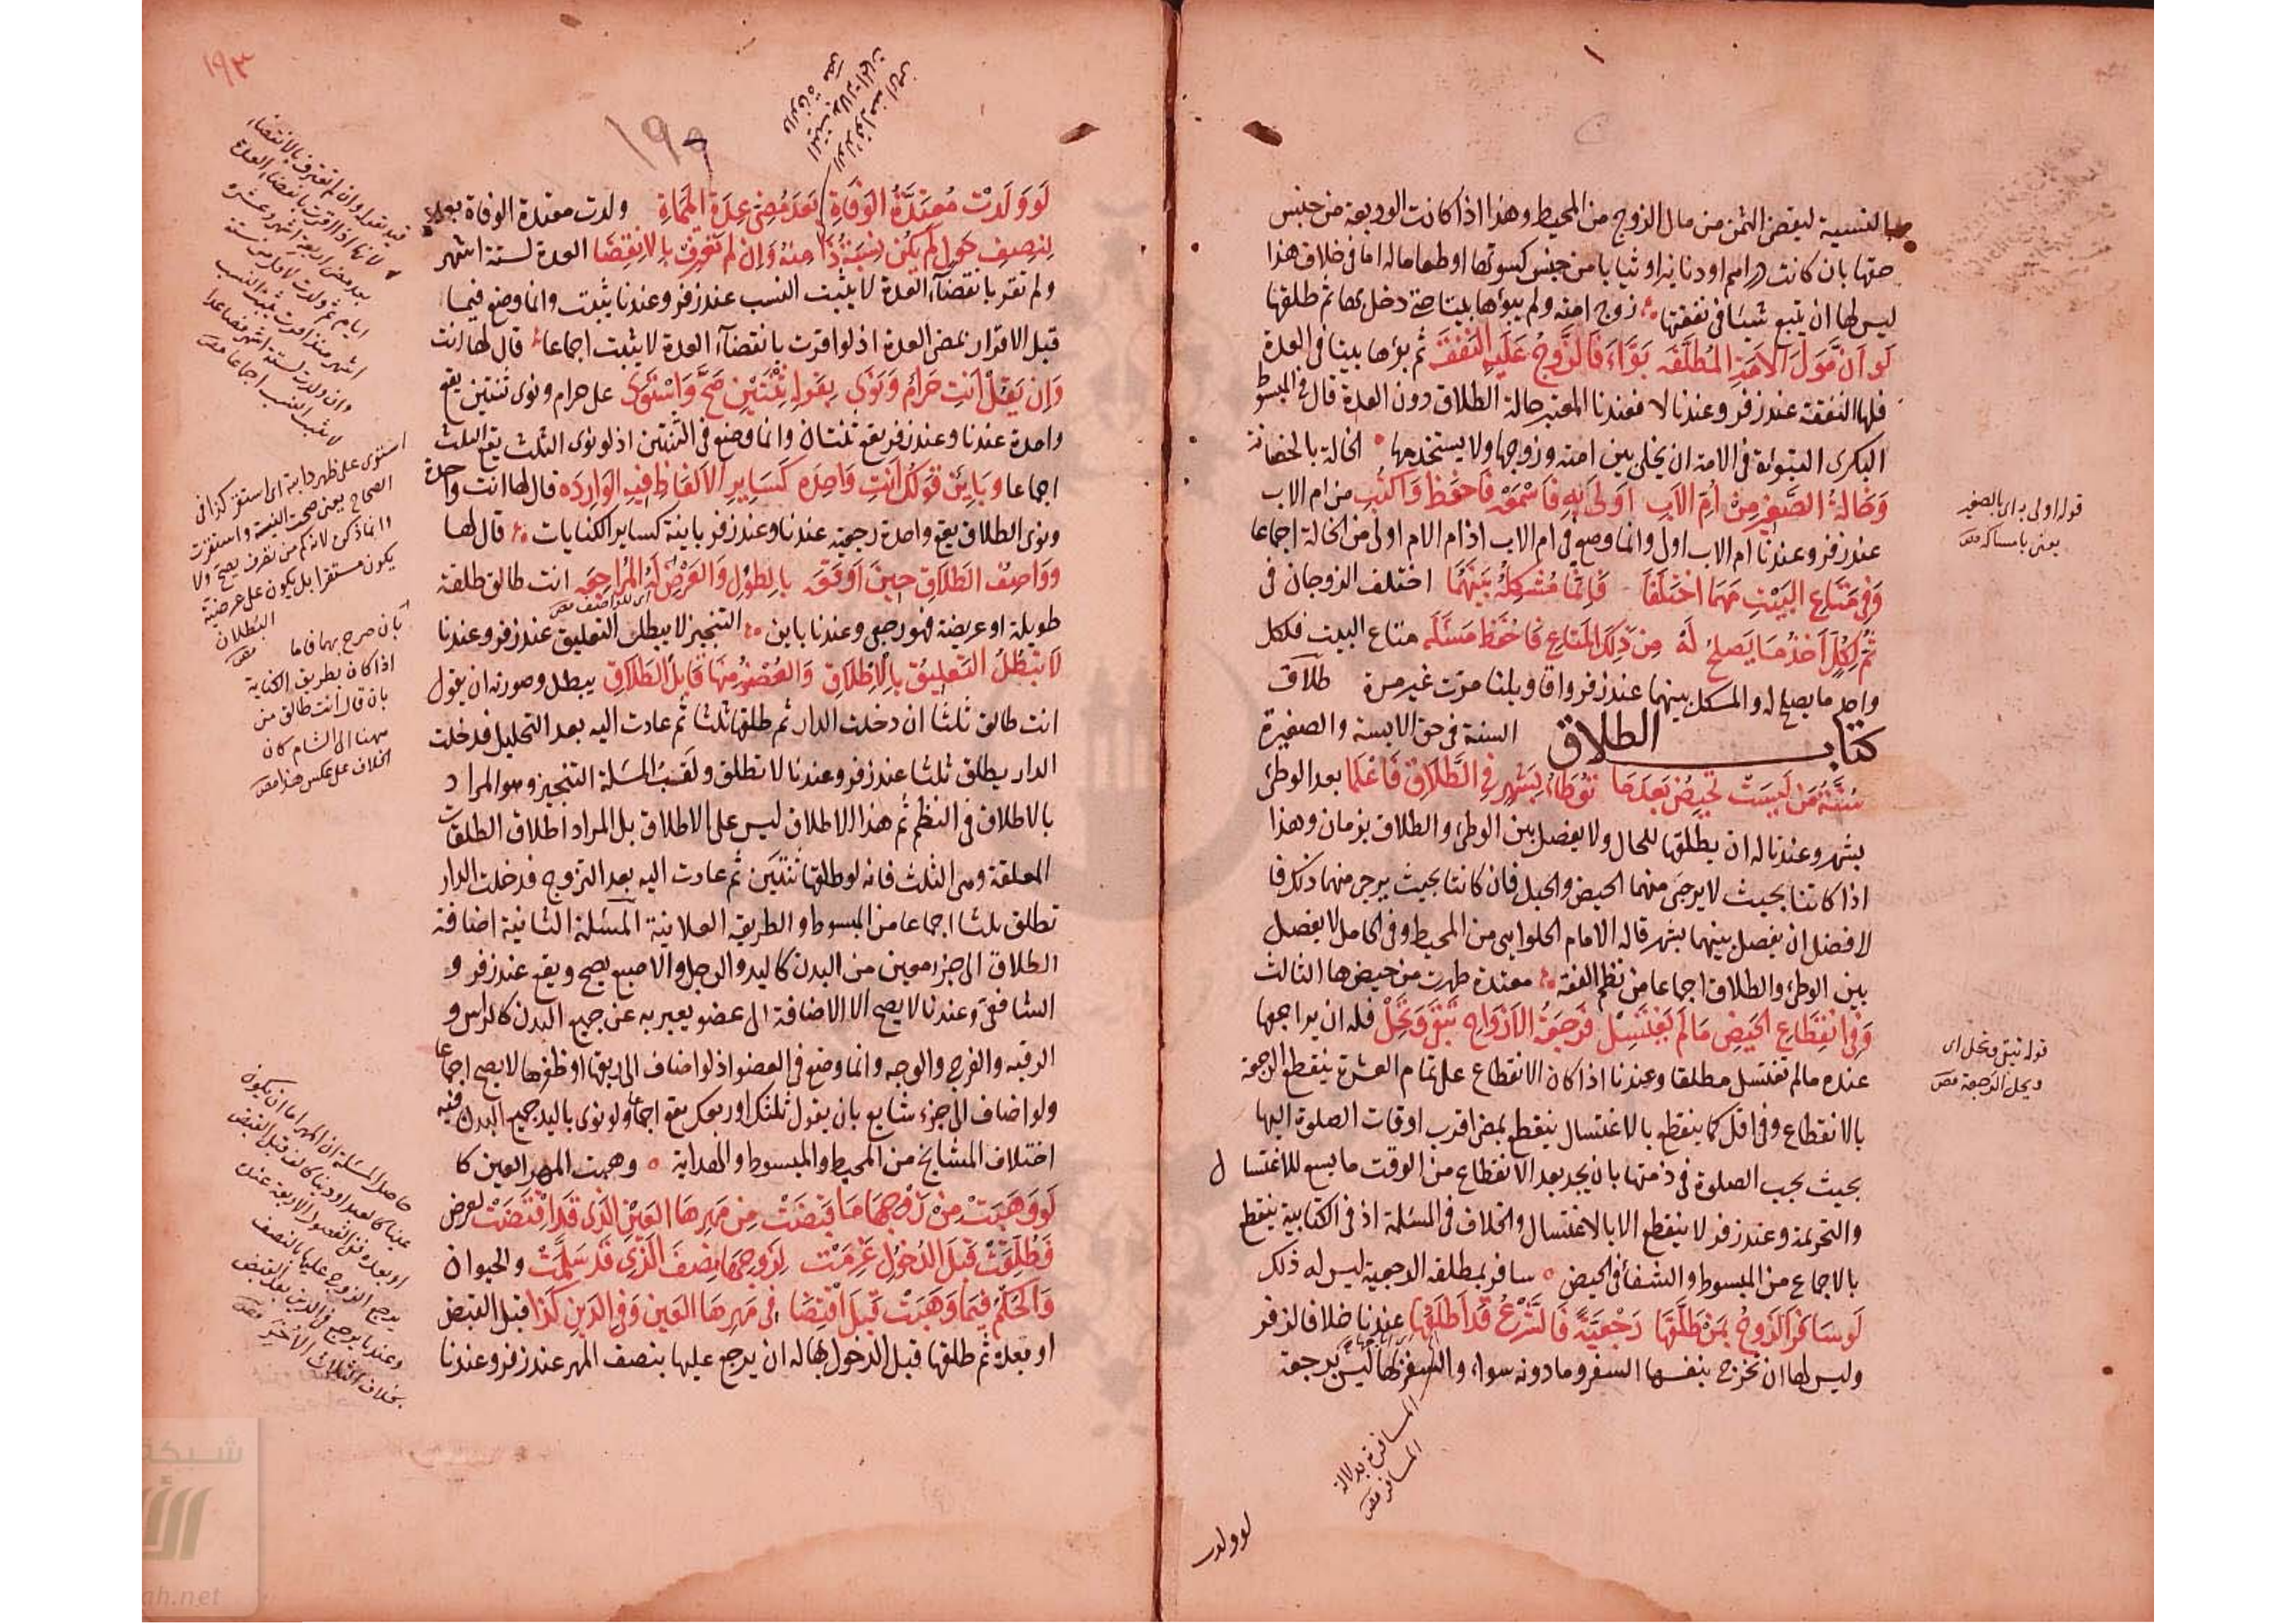 بالنسية ليقضى الثمن من مال الزوج من المحيط وهذا اذا كانت الوديعة من جنس
حقها بان كانت دراهم او دنانير او ثيابا من جنس كسوتها او طعاما له اما فى خلاف هذا
ليس لها ان يتبع شيئا فى نفقتها زوج امته ولم يبوءها بيتا حتى دخل بها ثم طلقها
لَو اَنَّ مَولَى الاَمَةِ المُطَلَّقَه بَوَّاءَ فَالزَّوجُ عَلَيهِ النَفَقَه ثم بوءها بيتا فى العدة
فلها النفقة عند زفر وعندنا لا فعندنا المعتبر حالة الطلاق دون العدة قال فى المبسوط
البكرى التبوئة فى الامة ان يخلى بين امته وزوجها ولا يستخدمها الخالة بالحضانة
وَخَالةُ الصَّغيرِ مِنْ اُمِّ الاَبِ اَولَى بِهِ فَاسْمَعْ فَاحْفَظ وَاكتُبِ من ام الاب
عند زفر وعندنا ام الاب اولى وانما وضع فى ام الاب اذ ام الام اولى من الخالة اجماعا
وَفِى مَتَاعِ البَيْتِ مَهمَا اختَلَفَا فَاِنَّمَا مُشكِلُهُ بَينَهُمَا اختلف الزوجان فى
ثُم لِكُلٍّ اَخذُ مَا يَصلُحُ لَهُ مِن ذٰلِكَ المَتَاعِ فَاحْفَظ مَسئَلَه متاع البيت فلكل
واحد ما يصلح له والمشكل بينهما عند زفر واقاويلنا مرّت غير مرة طلاق
كتاب الطلاق السنة فى حق الايسة والصغيرة
سُنَّةُ مَن لَيسَتْ تَحِيضُ بَعدَمَا تُوطَاءُ بِشَهرٍ فِى الطَّلَاقِ فَاعْلَمَا بعد الوطئ
بشهر وعندنا له ان يطلقها للحال ولا يفصل بين الوطئ والطلاق بزمان وهذا
اذا كانتا بحيث لا يرجى منهما الحيض والحبل فان كانتا بحيث يرجى منهما ذلك فا
لافضل ان يفصل بينهما بشهر قاله الامام الحلوانى من المحيط وفى الحامل لا يفصل
بين الوطئ والطلاق اجماعا من نظم الفقه معتدة طهرت من حيضها الثالث
وَفِى انْقِطَاعِ الحَيضِ مَا لَم تَغتَسِل فَرَجعَةُ الاَزوَاجِ تَبقَى وَتَحِلّ فله ان يراجعها
عنده ما لم تغتسل مطلقا وعندنا اذا كان الانقطاع على تمام العشرة ينقطع الرجعة
بالانقطاع وفى اقل كما ينقطع بالاغتسال ينقطع بمضى اقرب اوقات الصلوة اليها
بحيث يجب الصلوة فى ذمتها بان يجد بعد الانقطاع من الوقت ما يسع للاغتسال
والتحريمة وعند زفر لا ينقطع الا بالاغتسال والخلاف فى المسئلة اذ فى الكتابية ينقطع
بالاجماع من المبسوط والشفا فى الحيض سافر بمطلقه الرجعية ليس له ذلك
لَو سَافَرَ الزَوجُ بِمَن طَلَّقَهَا رَجْعِيَّةً فَالشَّرعُ قَد اَطلَقَهَا عندنا خلافا لزفر
وليس لها ان تخرج بنفسها السفر وما دونه سواء والسفر بها ليس برجعة
المسافرة بدلالة
المسافر
لو ولدت
قوله اولى به اى بالصغير
يعنى بامساكه
قوله تبقى وتحل اى
ويحل الرجعة
١٩٣
١٩٥
لَو وَلَدَتْ مُعتَدَّةُ الوَفَاةِ بَعدَ مُضِىِّ عِدَةِ المَمَاةِ ولدت معتدة الوفاة بعد
لِنِصفِ حَولٍ لَم يَكُن نِسبَةُ ذَا مِنهُ وَاِن لَم تَعتَرِفْ بِالاِنقِضَا العدة لستة اشهر
ولم تقر بانقضاء العدة لا يثبت النسب عند زفر وعندنا يثبت وانما وضع فيما
قبل الاقرار بمضى العدة اذ لو اقرت بانقضاء العدة لا يثبت اجماعا قال لها انت
وَاِن يَقُلْ اَنتِ حَرامٌ وَنَوَى بِقَولِهِ ثِنْتَيْنِ صَحَّ وَاسْتَوَى على حرام ونوى ثنتين يقع
واحدة عندنا وعند زفر يقع ثنتان وانما وضع فى الثنتين اذ لو نوى الثلث يقع الثلث
اجماعا وَبَائِنٌ قَولُكَ اَنتِ وَاحِدَه كَسَايِرِ الاَلفَاظِ فِيهِ الوَارِدَه قال لها انت واحدة
ونوى الطلاق يقع واحدة رجعية عندنا وعند زفر باينة كساير الكنايات قال لها
وَوَاصِفُ الطَلَاقِ حِينَ اَوقَعَه بِالطُولِ وَالعَرْضِ لَهُ المُرَاجَعَه انت طالق طلقة
طويلة او عريضة فهو رجعى وعندنا باين التنجيز لا يبطل التعليق عند زفر وعندنا
لَا يَبطُلُ التَعلِيقُ بِالاِطْلَاقِ وَالعُضْوُ مِنهَا قَابِلُ الطَلَاقِ يبطل وصورته ان يقول
انت طالق ثلثا ان دخلت الدار ثم طلقها ثلثا ثم عادت اليه بعد التحليل فدخلت
الدار يطلق ثلثا عند زفر وعندنا لا تطلق ولقب المسئلة التنجيز وهو المراد
بالاطلاق فى النظم ثم هذا الاطلاق ليس على الاطلاق بل المراد اطلاق الطلقات
المعلقة وهى الثلث فانه لو طلقها ثنتين ثم عادت اليه بعد التزوج فدخلت الدار
تطلق ثلثا اجماعا من المبسوط والطريقة العلائية المسئلة الثانية اضافة
الطلاق الى جزء معين من البدن كاليد والرجل والاصبع يصح ويقع عند زفر و
الشافعى وعندنا لا يصح الا الاضافة الى عضو يعبر به عن جميع البدن كالراس و
الرقبة والفرج والوجه وانما وضع فى العضو اذ لو اضاف الى ريقها او ظفرها لا يصح اجماعا
ولو اضاف الى جزء شايع بان يقول ثلثك او ربعك يقع اجماعا ولو نوى باليد جميع البدن ففيه
اختلاف المشايخ من المحيط والمبسوط والهداية وهبت المهر العين كا
لَو وَهَبَتْ مِنْ زَوجِهَا مَا قَبَضَتْ مِن مَهرِهَا العَيْنِ الَّذِى قَد اقْتَضَتْ لعرض
فَطُلِّقَتْ قَبلَ الدُخُولِ غَرِمَت لِزَوجِهَا نِصفَ الَّذِى قَد سَلَّمَتْ والحيوان
وَالحُكمُ فِيمَا وَهَبَت قَبلَ اقْتِضَا فِى مَهرِهَا العَين وَفِى الدَين كَذَا قبل القبض
او بعده ثم طلقها قبل الدخول بها له ان يرجع عليها بنصف المهر عند زفر وعندنا
قيد بقوله وان لم تعترف بالانقضاء
لانها اذا اقرت بانقضاء العدة
بعد مضى اربعة اشهر وعشرة
ايام ثم ولدت لاقل من ستة
اشهر منذ اقرت يثبت النسب
وان ولدت لستة اشهر فصاعدا
لا يثبت النسب اجماعا
استوى على ظهر دابته اى استقر كذا فى
الصحاح يعنى صحت النية واستقرت
يكون مستقرا بل يكون على عرضية
البطلان
بان صرح بهما فاما
اذا كان بطريق الكناية
بان قال انت طالق من
ههنا الى الشام كان
الخلاف على عكس هذا
حاصل المسئلة ان المهر اما ان يكون
عينا كالعبد او دينا كالف قبل القبض
او بعده ففى الفصول الاربعة عنده
يرجع الزوج عليها بالنصف
وعندنا يرجع فى الدين بعد القبض
بخلاف الثلاث الاخير
شبكة
ah.net